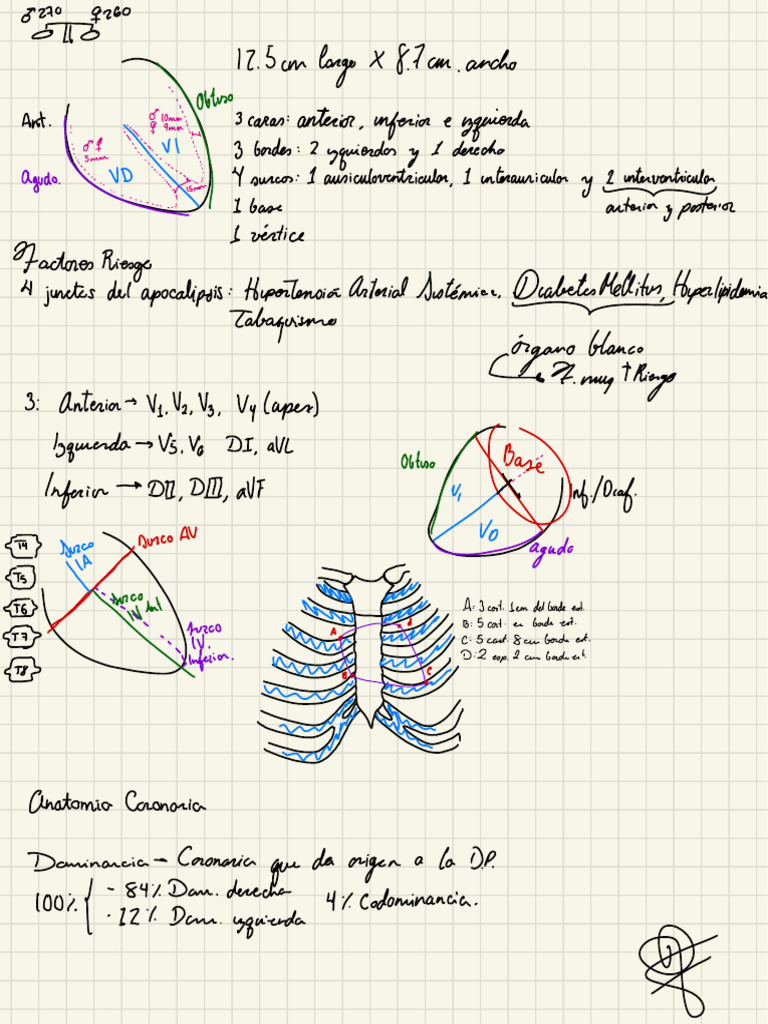 ♂270 ♀260
12.5cm largo X 8.7cm. ancho
Obtuso
♂ 10mm
♀ 9mm
Ant.
♂♀
5mm
VI
VD
15mm
Agudo.
3 caras: anterior, inferior e izquierda
3 bordes: 2 izquierdos y 1 derecho
4 surcos: 1 auriculoventricular, 1 interauricular y 2 interventricular
anterior y posterior
1 base
1 vértice
Factores Riesgo
4 jinetes del apocalipsis: Hipertensión Arterial Sistémica, Diabetes Mellitus, Hiperlipidemia
Tabaquismo
órgano blanco
F. muy ↑ Riesgo
3: Anterior → V1, V2, V3, V4 (apex)
Izquierda → V5, V6 DI, aVL
Inferior → DII, DIII, aVF
Obtuso
Base
VI
VD
Inf./Diaf.
agudo
T4
T5
T6
T7
T8
Surco
IA
Surco AV
Surco
IV ant
Surco
IV
Inferior.
A
B
C
d
A: 3 cart. 1cm del borde est.
B: 5 cart. en borde est.
C: 5 cart 8cm borde est.
D: 2 esp. 2 cm borde est
Anatomia Coronaria
Dominancia - Coronaria que da origen a la D.P.
100% - 84% Dom. derecha
- 12% Dom. izquierda
4% Codominancia.